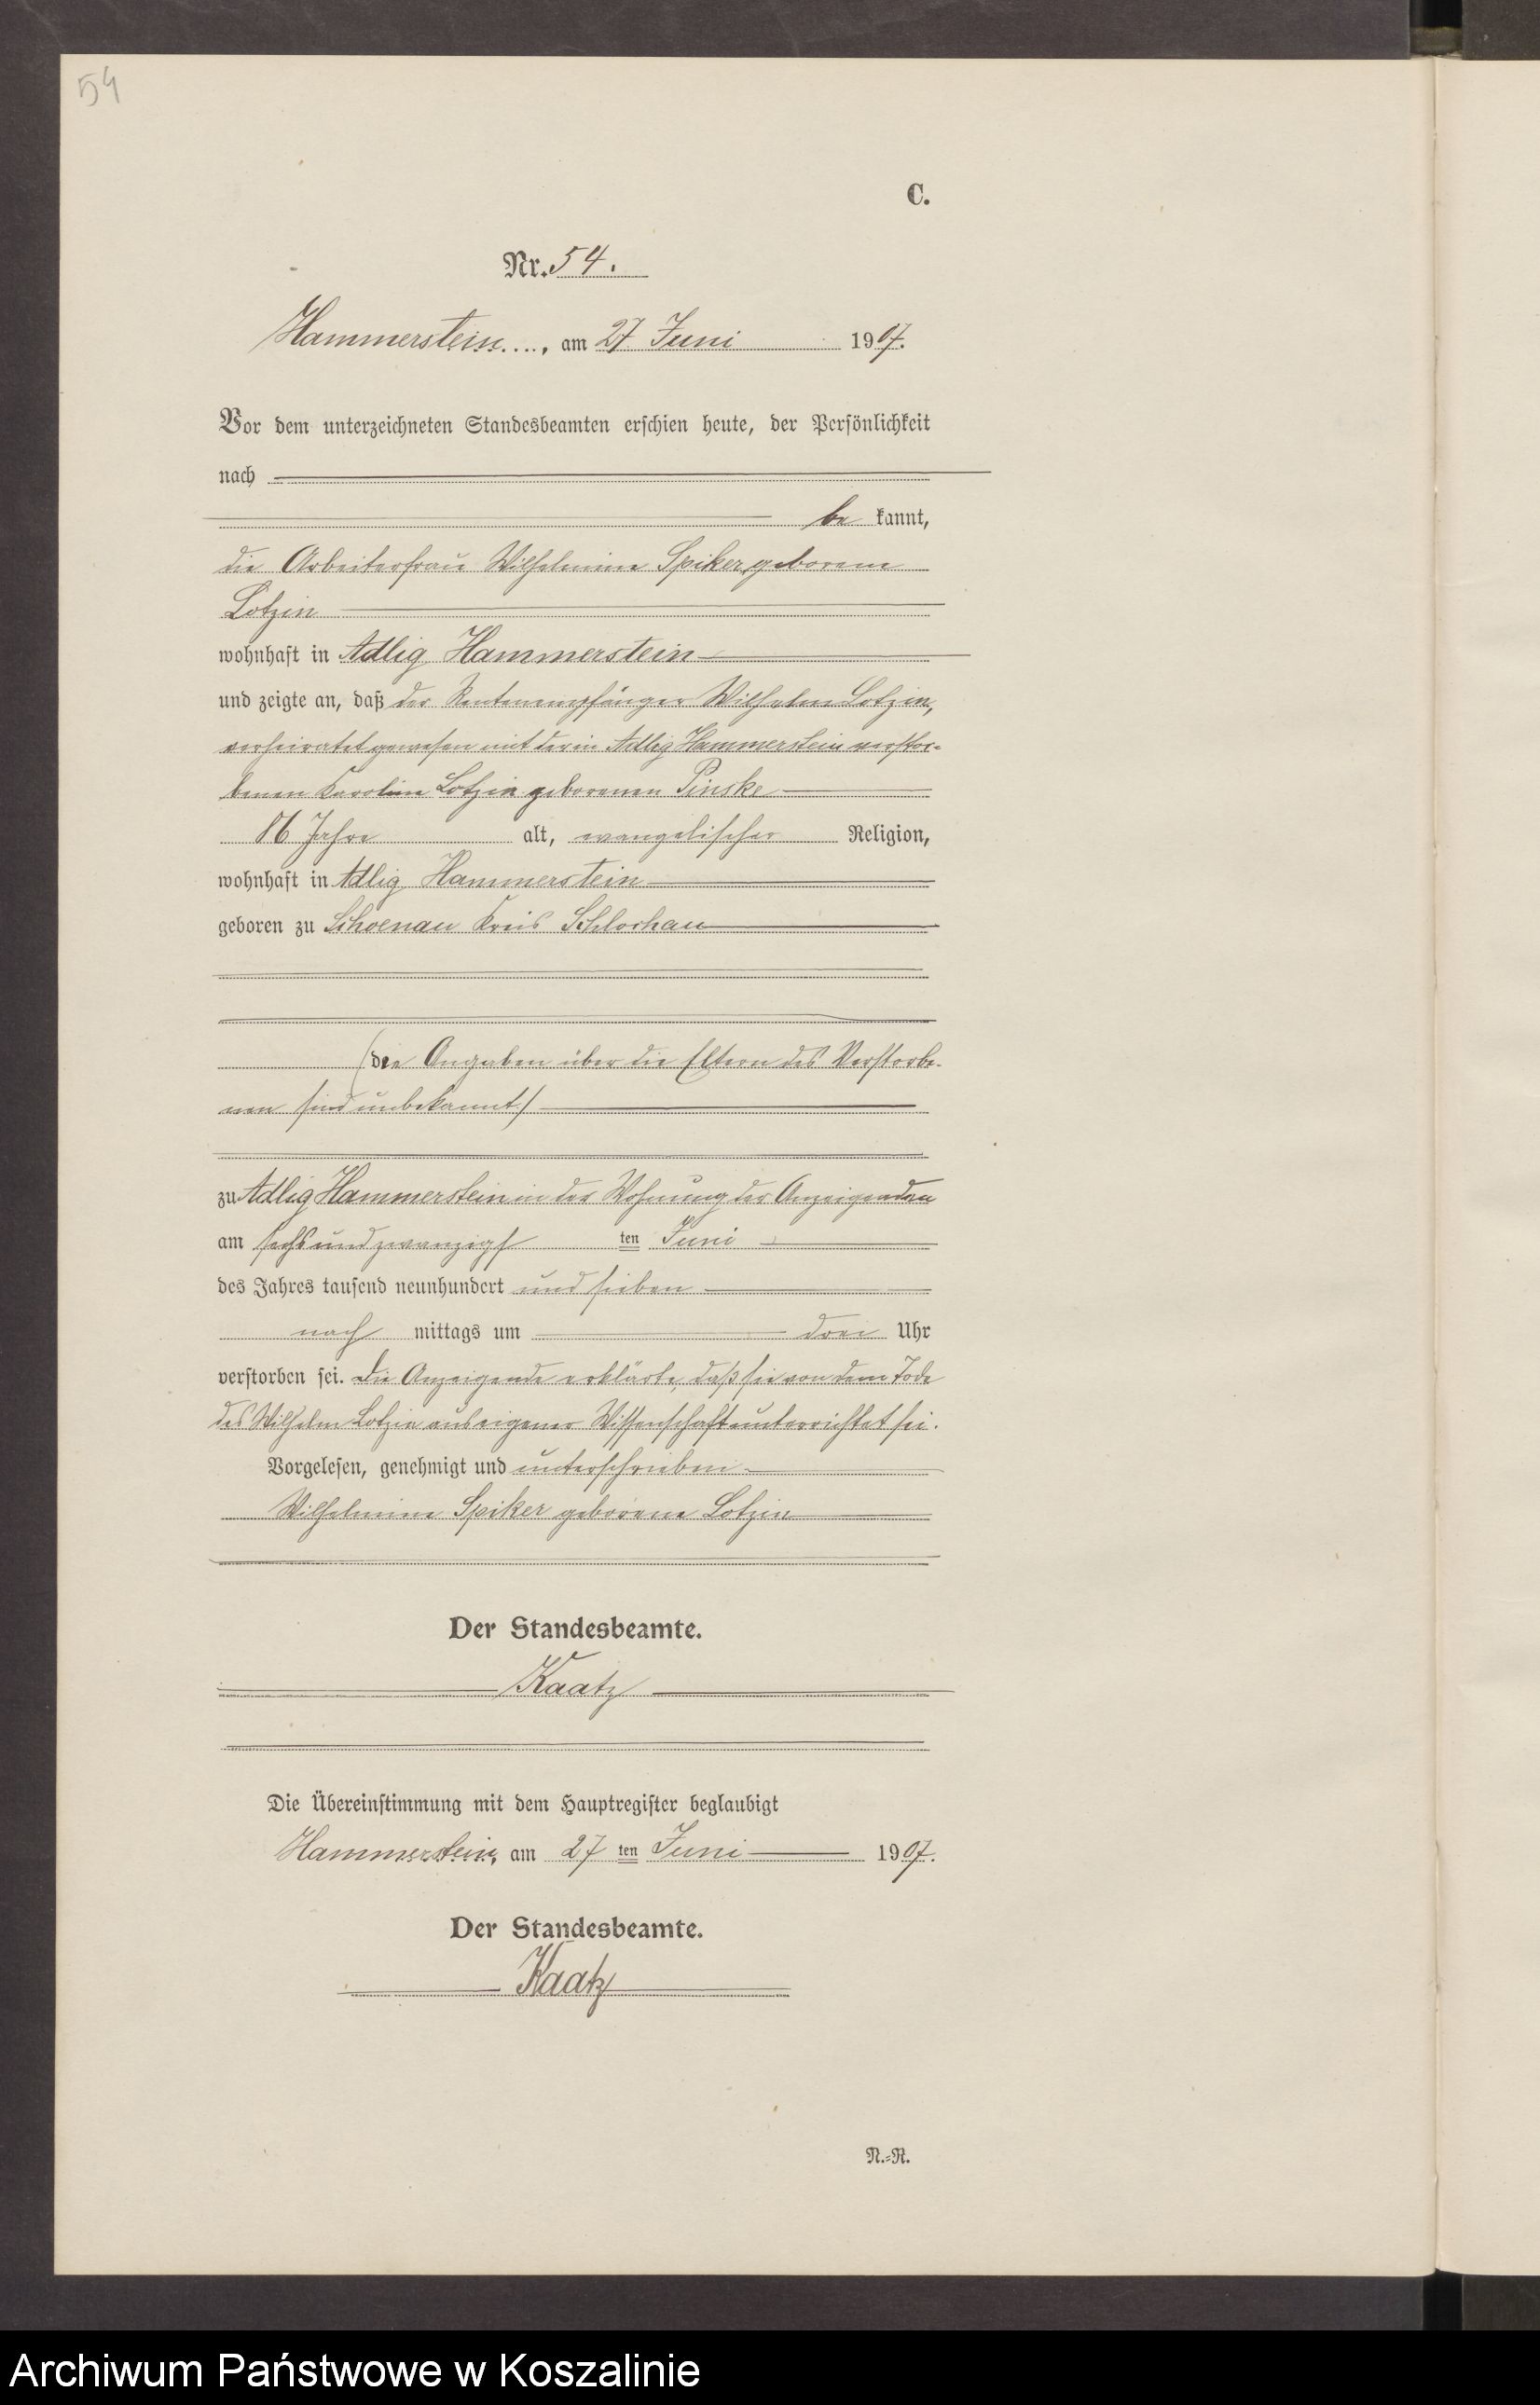 54
C.
Nr. 54.
Hammerstein...., am 27 Juni 1907.
Vor dem unterzeichneten Standesbeamten erschien heute, der Persönlichkeit
nach
be kannt,
die Arbeiterfrau Wilhelmine Spiker, geborene
Lotzin
wohnhaft in Adlig Hammerstein
und zeigte an, daß der Rentenempfänger Wilhelm Lotzin,
verheiratet gewesen mit der in Adlig Hammerstein verstor-
benen Karoline Lotzin geborenen Pinske
86 Jahre alt, evangelischer Religion,
wohnhaft in Adlig Hammerstein
geboren zu Schoenau Kreis Schlochau
(die Angaben über die Eltern des Verstorbe-
nen sind unbekannt)
zu Adlig Hammerstein in der Wohnung der Anzeigenden
am sechsundzwanzigs ten Juni
des Jahres tausend neunhundert und sieben
nach mittags um drei Uhr
verstorben sei. Die Anzeigende erklärte, daß sie von dem Tode
des Wilhelm Lotzin aus eigener Wissenschaft unterrichtet sei.
Vorgelesen, genehmigt und unterschrieben
Wilhelmine Spiker geborene Lotzin
Der Standesbeamte.
Kaatz
Die Übereinstimmung mit dem Hauptregister beglaubigt
Hammerstein, am 27 ten Juni 1907.
Der Standesbeamte.
Kaatz
N.=R.
Archiwum Państwowe w Koszalinie